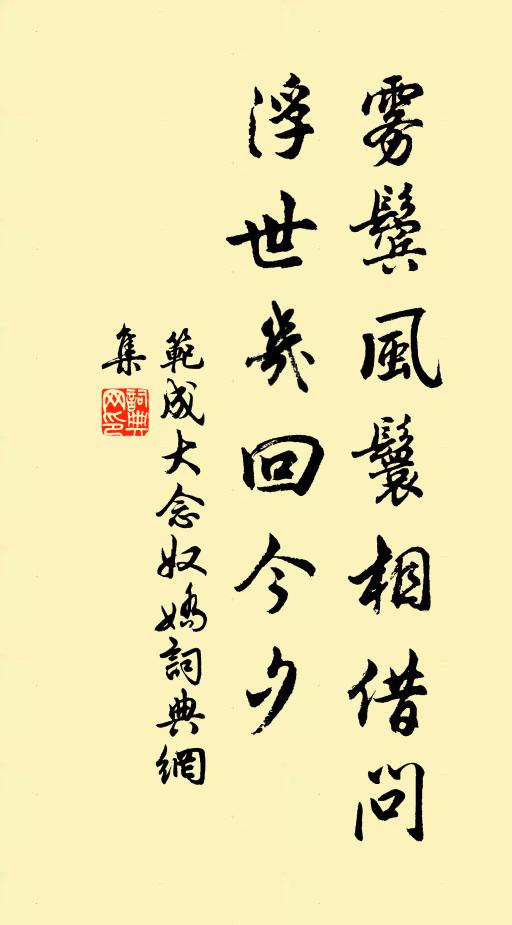 雾鬢風鬟相借問
浮世幾回今夕
範成大念奴嬌詞典網
集
詞典网印